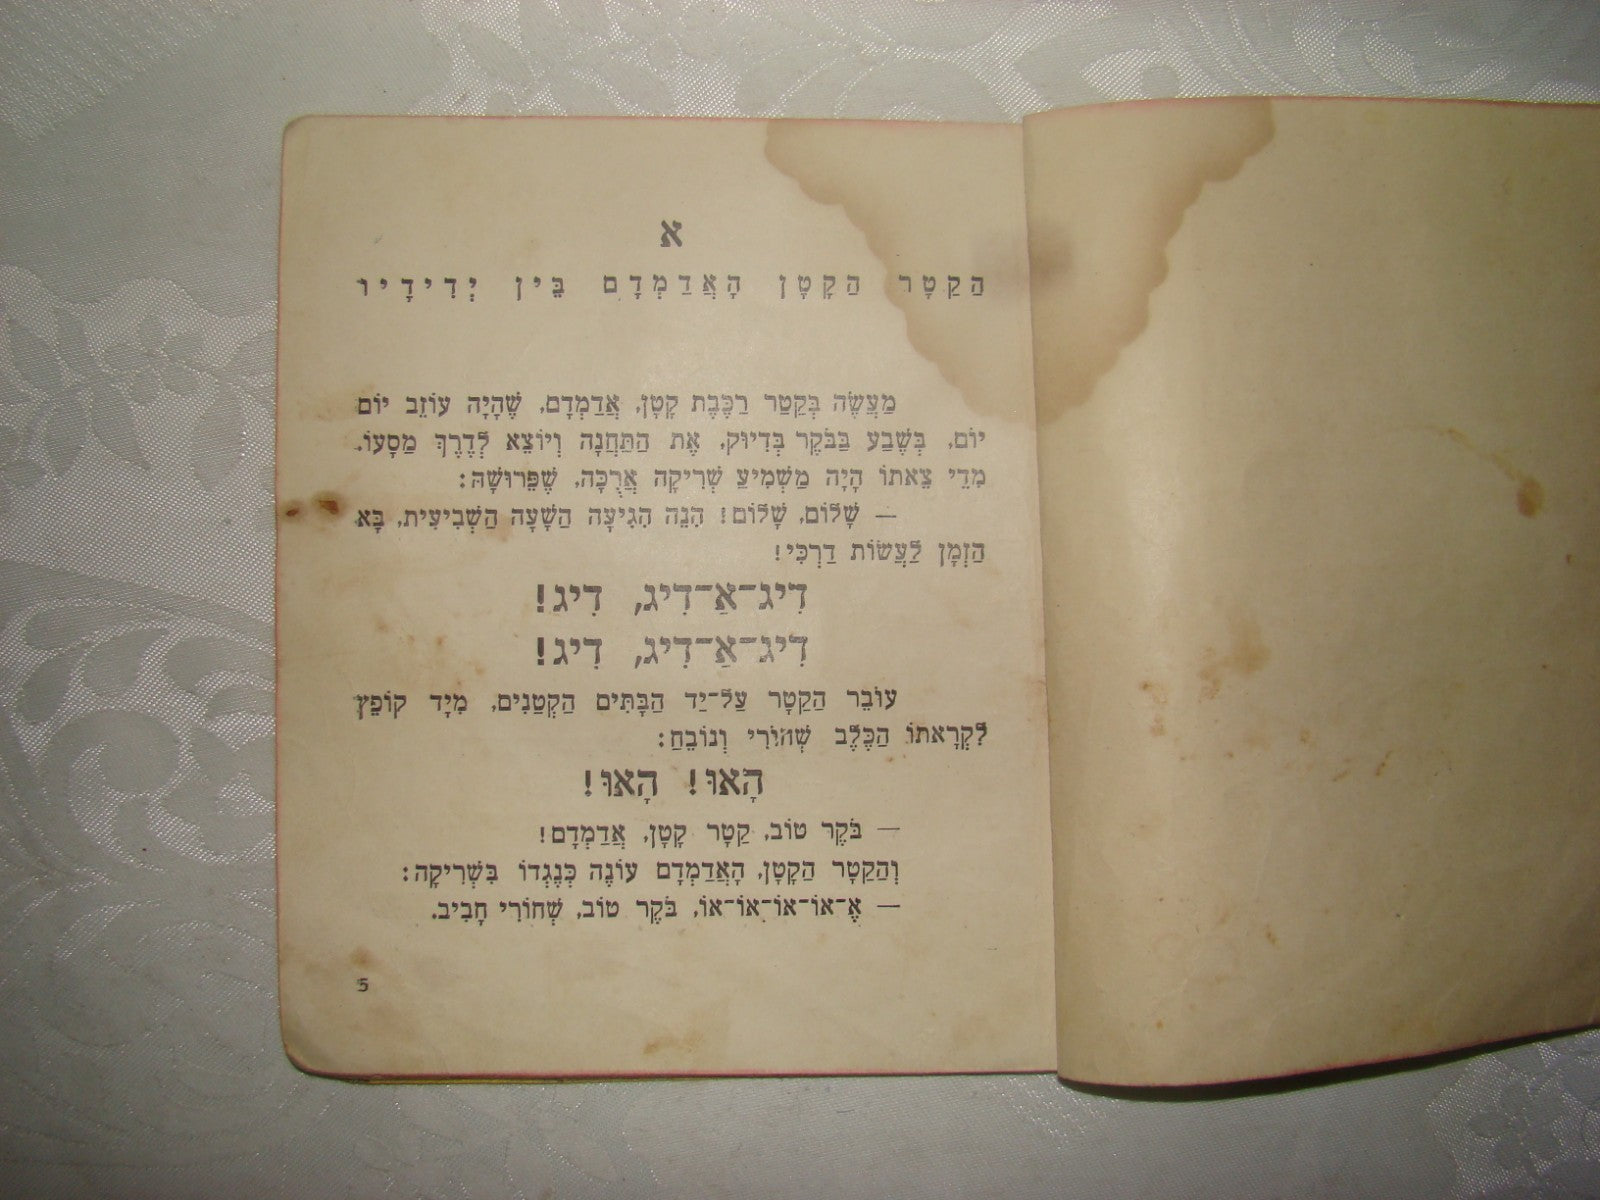 א
הַקַטָר הַקָטָן הָאֲדַמְדָם בֵּין יְדִידָיו
מַעֲשֶׂה בְּקַטַר רַכֶּבֶת קָטָן, אֲדַמְדָם, שֶׁהָיָה עוֹזֵב יוֹם
יוֹם, בְּשֶׁבַע בַּבֹּקֶר בְּדִיוּק, אֶת הַתַּחֲנָה וְיוֹצֵא לְדֶרֶךְ מַסָעוֹ.
מִדֵי צֵאתוֹ הָיָה מַשְׁמִיעַ שְׁרִיקָה אֲרֻכָּה, שֶׁפֵּרוּשָׁהּ:
— שָׁלוֹם, שָׁלוֹם! הִנֵה הִגִיעָה הַשָׁעָה הַשְׁבִיעִית, בָּא
הַזְמָן לַעֲשׂוֹת דַרְכִּי!
דִיג־אַ־דִיג, דִיג!
דִיג־אַ־דִיג, דִיג!
עוֹבֵר הַקַטָר עַל־יַד הַבָּתִּים הַקְטַנִים, מִיָד קוֹפֵץ
לִקְרָאתוֹ הַכֶּלֶב שְׁחוֹרִי וְנוֹבֵחַ:
הָאוּ! הָאוּ!
— בֹּקֶר טוֹב, קַטָר קָטָן, אֲדַמְדָם!
וְהַקַטָר הַקָטָן, הָאֲדַמְדָם עוֹנֶה כְּנֶגְדוֹ בִּשְׁרִיקָה:
— אֶ־אוֹ־אוֹ־אוֹ־אוֹ, בֹּקֶר טוֹב, שְׁחוֹרִי חָבִיב.
5